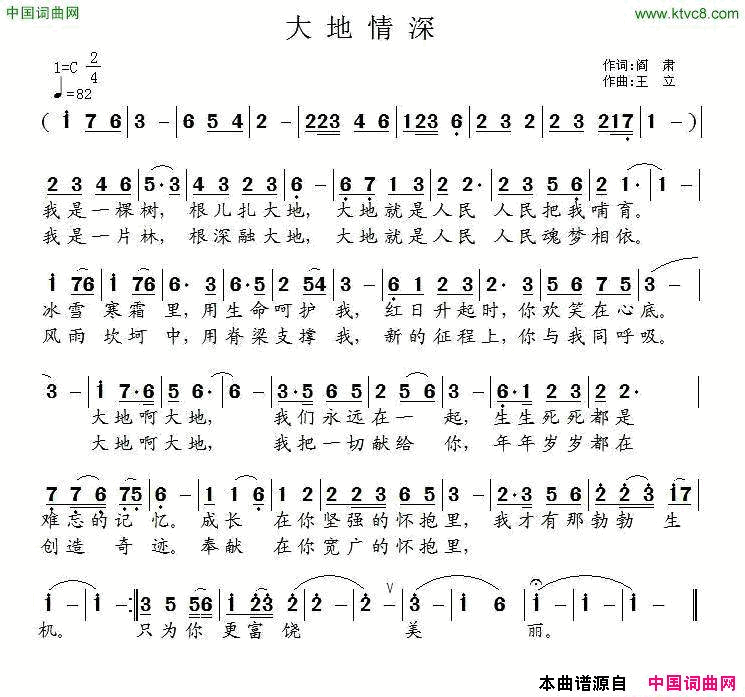 中国词曲网
www.ktvc8.com
大地情深
1=C 2/4
♩=82
作词:阎 肃
作曲:王 立
( i 7 6 | 3 - | 6 5 4 | 2 - | 223 46 | 1236 | 2 3 2 | 2 3 217 | 1 - ) |
2 3 4 6 | 5·3 | 4 3 2 3 | 6 - | 6 7 1 3 | 2 2· | 2 3 5 6 | 2 1· | 1 - |
我是一棵树, 根儿扎大地, 大地就是人民 人民把我哺育。
我是一片林, 根深融大地, 大地就是人民 人民魂梦相依。
i 76 i 76 | 6· 3 | 6·5 5 | 2 54 | 3 - | 6 1 2 3 | 2 2· | 5 6 7 5 | 3 - |
冰雪 寒霜 里, 用生命呵护 我, 红日升起时, 你欢笑在心底。
风雨 坎坷 中, 用脊梁支撑 我, 新的征程上, 你与我同呼吸。
3 - | i 7·6 | 5 5· | 6 - | 3·5 6 5 | 2 5 6 | 3 - | 6·1 2 3 | 2 2· |
大地啊大地, 我们永远在一 起, 生生死死都是
大地啊大地, 我把一切献给 你, 年年岁岁都在
7 7 6 75 | 6 - | 1 1 6 | 1 2 1 | 4 5 6 5 | 3 - | 2·3 5 5 | 2 2 3 | i7 |
难忘的记 忆。 成长 在你坚强的怀抱里, 我才有那勃勃 生
创造 奇迹。 奉献 在你宽广的怀抱里,
i - | i - :| 3 5 56 | i 23 | 2 | 2 - | 2 - | 3 - | i 6 | i - | i - ‖
机。 只为你 更富饶 美 丽。
本曲谱源自 中国词曲网